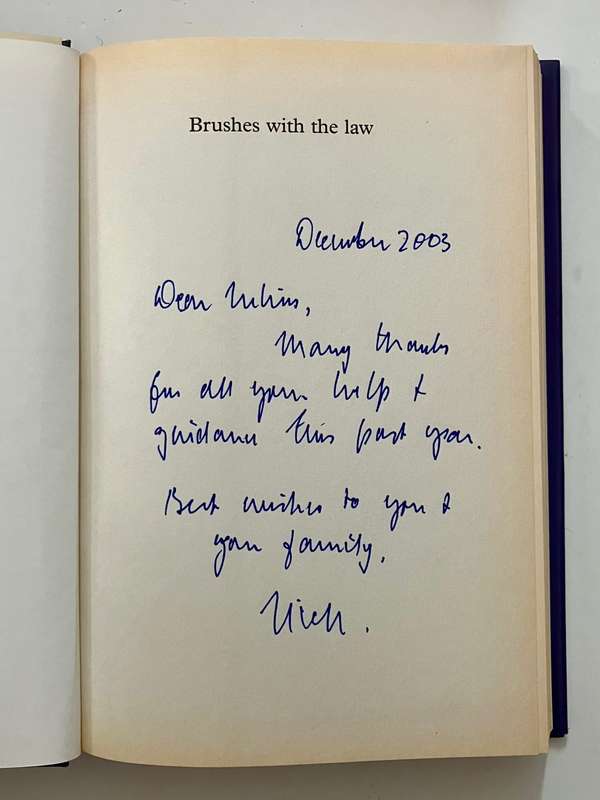 Brushes with the law
December 2003
Dear Julius,
Many thanks
for all your help &
guidance this past year.
Best wishes to you &
your family,
Nick.